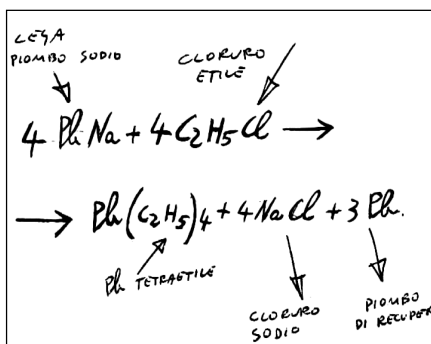 LEGA
PIOMBO SODIO
CLORURO
ETILE
4 Pb Na + 4 C2H5Cl →
→ Pb(C2H5)4 + 4 NaCl + 3 Pb.
Pb TETRAETILE
CLORURO
SODIO
PIOMBO
DI RECUPER